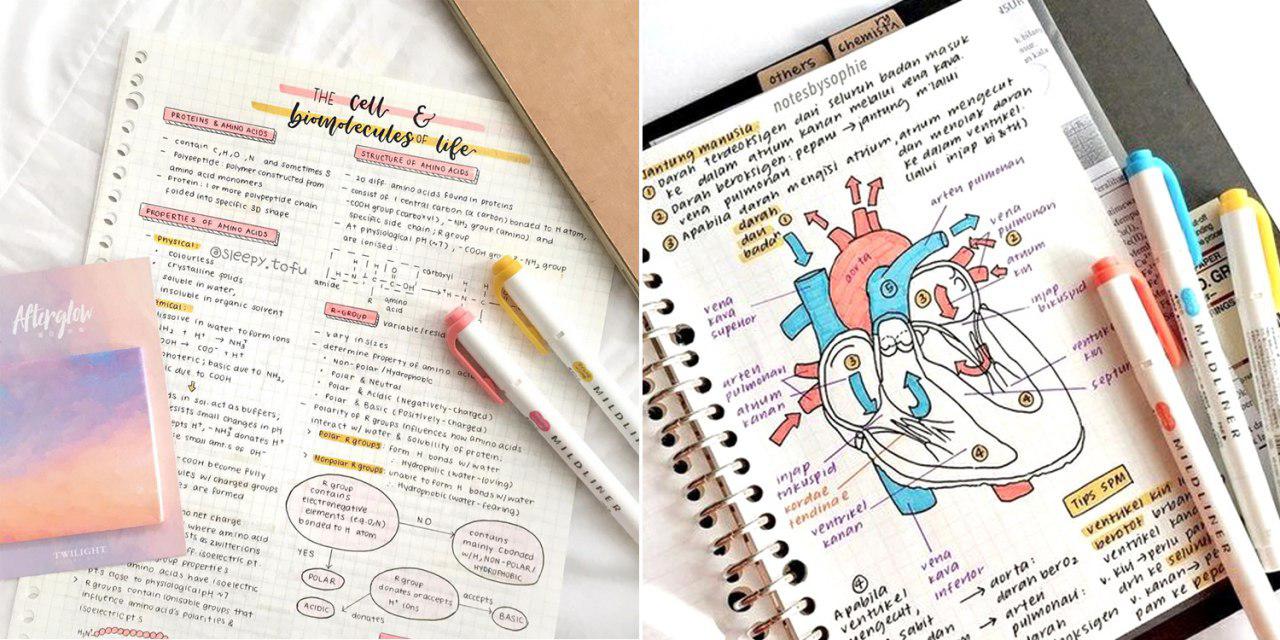 THE cell &
biomolecules OF life
PROTEINS & AMINO ACIDS
- contain C,H,O,N and sometimes S
- Polypeptide: polymer constructed from
amino acid monomers
- Protein: 1 or more polypeptide chain
folded into specific 3D shape
PROPERTIES OF AMINO ACIDS
Physical:
colourless
crystalline solids
soluble in water,
insoluble in organic solvent
dissolve in water to form ions
basic due to NH₂,
due to COOH
in sol. act as buffers,
small changes in pH
donates H⁺
small amts. of OH⁻
COOH become fully
w/ charged groups
are formed
no net charge
where amino acid
as zwitterions
isoelectric pt.
group properties
amino acids have isoelectric
pts close to physiological pH ∵ 7
R groups contain ionisable groups that
influence amino acid's polarities &
isoelectric pt.s
H₃N⁺
@sleepy.tofu
STRUCTURE OF AMINO ACIDS
- 20 diff. amino acids found in proteins
- consist of 1 central carbon (α carbon) bonded to H atom,
-COOH group (carboxyl), -NH₂ group (amino) and
specific side chain; R group
- At physiological pH (≈7), -COOH group & -NH₂ group
are ionised:
carboxyl
amide
amino
acid
R-GROUP
variable/
- vary in sizes
- determine property of amino
• Non-polar/Hydrophobic
• Polar & Neutral
• Polar & Acidic (Negatively-charged)
• Polar & Basic (Positively-charged)
- Polarity of R groups influences how amino acids
interact w/ water & solubility of protein:
> Polar R groups: form H bonds w/ water
∴ Hydrophilic (water-loving)
> Nonpolar R groups: unable to form H bonds w/ water
∴ Hydrophobic (water-fearing)
R group
contains
electronegative
elements (e.g. O,N)
bonded to H atom
NO
contains
mainly C bonded
w/ H, NON-POLAR/
HYDROPHOBIC
YES
POLAR
R group
donates or accepts
H⁺ ions
accepts
BASIC
donates
ACIDIC
Afterglow
TWILIGHT
MILDLINER
MILDLINER
others
chemistry
notesbysophie
Jantung manusia
① Darah terdeoksigen dari seluruh badan masuk
ke dalam atrium kanan melalui vena kava.
② Darah beroksigen: pepar → jantung m'lalui
vena pulmonari
③ Apabila darah mengisi atrium, atrium mengecut
dan menolak darah
ke dalam ventrikel
(lalui injap bi & tri)
darah
dari
badan
①
arteri pulmonari
vena
pulmonari
②
atrium
kiri
injap
bikuspid
ventrikel
kiri
septum
aorta
⑤
③
③
④
④
vena
kava
superior
arteri
pulmonari
atrium
kanan
injap
trikuspid
kordae
tendinae
ventrikel
kanan
vena
kava
inferior
Tips SPM
ventrikel kiri
berotot
ventrikel kanan
v. kiri → perlu pam
drh ke seluruh
v. kanan →
pam ke pepar
④
Apabila
ventrikel
mengecut,
sabit
→ aorta:
darah berO₂
→ arteri
pulmonari:
MILDLINER
MILDLINER
MILDLINER